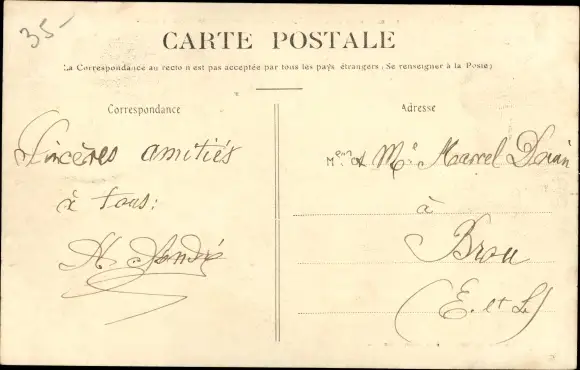 35-
CARTE POSTALE
La Correspondance au recto n'est pas acceptée par tous les pays étrangers (Se renseigner à la Poste)
Correspondance
Adresse
Sincères amitiés
à tous:
Mr et Me Marcel
à
Brou
(E. et L.)